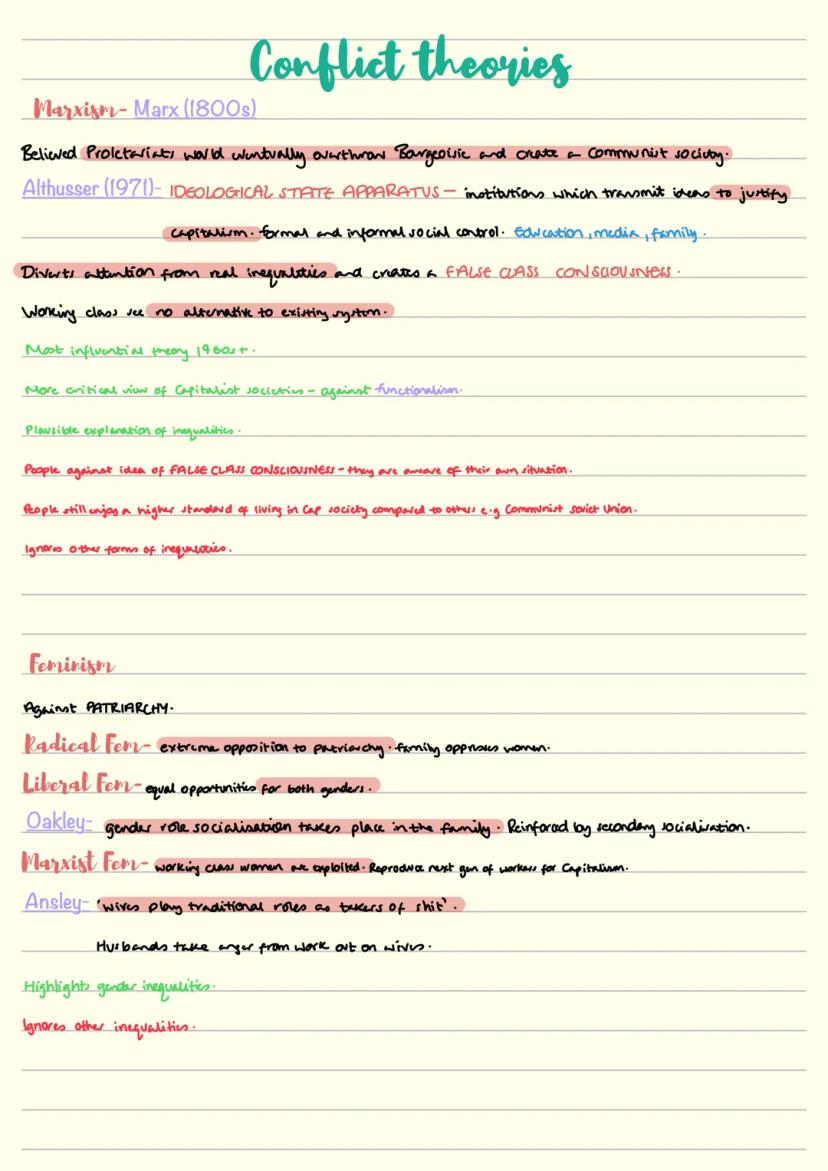 Conflict theories
Marxism- Marx (1800s)
Believed Proletariats would eventually overthrow Bourgeoisie and create a Communist society.
Althusser (1971)- IDEOLOGICAL STATE APPARATUS - institutions which transmit ideas to justify
capitalism. formal and informal social control. Education, media, family.
Diverts attention from real inequalities and creates a FALSE CLASS CONSCIOUSNESS.
Working class see no alternative to existing system.
Most influential theory 1960s+.
More critical view of Capitalist societies - against functionalism.
Plausible explanation of inequalities.
People against idea of FALSE CLASS CONSCIOUSNESS - they are aware of their own situation.
People still enjoy a higher standard of living in Cap society compared to others e.g Communist Soviet Union.
Ignores other forms of inequalities.
Feminism
Against PATRIARCHY.
Radical Fem- extreme opposition to patriarchy. family oppresses women.
Liberal Fem- equal opportunities for both genders.
Oakley- gender role socialisation takes place in the family. Reinforced by secondary socialisation.
Marxist Fem- working class women are exploited. Reproduce next gen of workers for Capitalism.
Ansley- 'wives play traditional roles as takers of shit'.
Husbands take anger from work out on wives.
Highlights gender inequalities.
Ignores other inequalities.